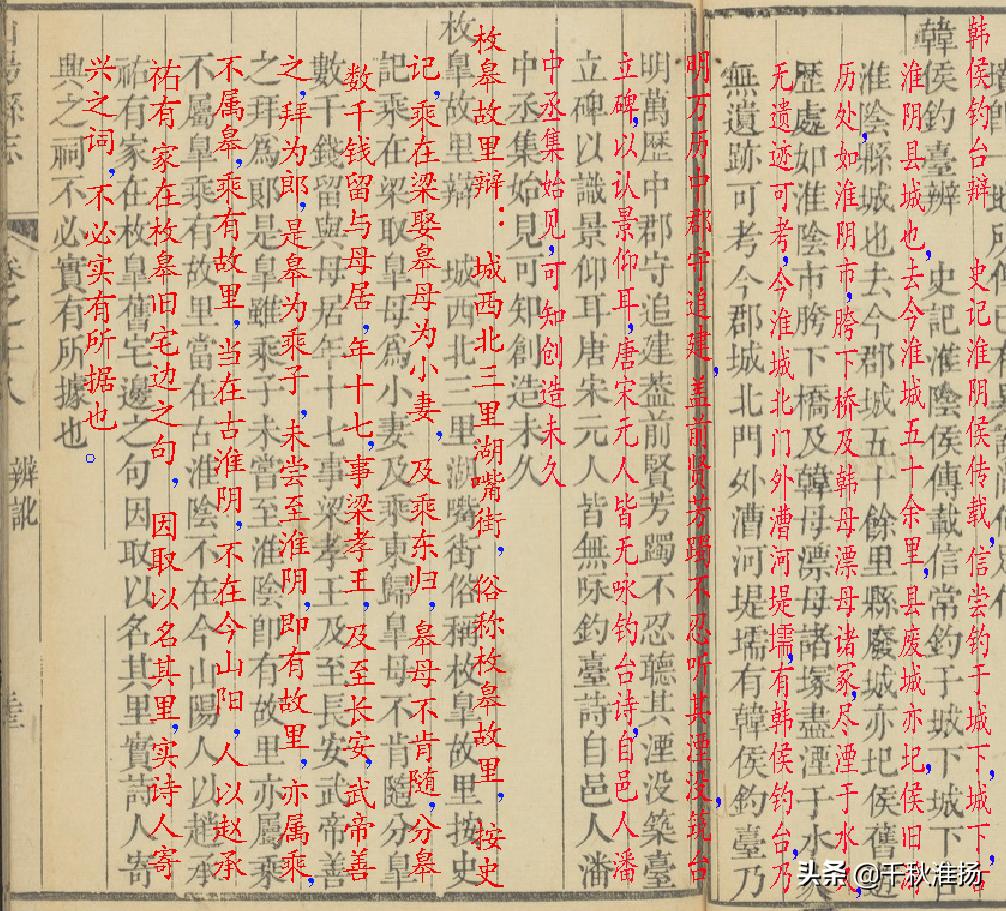 韩侯钓台辩 史记淮阴侯传载,信尝钓于城下,城下,
韓侯釣臺辨 史記淮陰侯傳載信常釣于城下城下
淮阴县城也,去今淮城五十余里,县废城亦圮侯旧
淮陰縣城也去今郡城五十餘里縣廢城亦圯侯舊
历处,如淮阴市,胯下桥及韩母漂母诸冢,尽湮于水
歷處如淮陰市胯下橋及韓母漂母諸塚盡湮于水
无遗迹可考,今淮城北门外漕河堤壖,有韩侯钓台,乃
無遺跡可考今郡城北門外漕河堤壖有韓侯釣臺乃
明万历中郡守追建,盖前贤芳躅不忍听其湮没,筑台
明萬歷中郡守追建葢前賢芳躅不忍聽其湮没築臺
立碑,以认景仰耳,唐宋元人皆无咏钓台诗,自邑人潘
立碑以識景仰耳唐宋元人皆無咏釣臺詩自邑人潘
中丞集始见,可知创造未久
中丞集始見可知創造未久
枚皋故里辩: 城西北三里湖嘴街,俗称枚皋故里,按史
枚皐故里辯 城西北三里湖嘴街俗稱枚皐故里按史
记,乘在梁娶皋母为小妻,及乘东归,皋母不肯随,分皋
記乘在梁取皐母爲小妻及乘東歸皐母不肯隨分皐
数千钱留与母居,年十七,事梁孝王,及至长安,武帝善
數千錢留與母居年十七事梁孝王及至長安武帝善
之,拜为郎,是皋为乘子,未尝至淮阴,即有故里,亦属乘,
之拜爲郎是皐雖乘子未嘗至淮陰卽有故里亦屬乘
不属皋,乘有故里,当在古淮阴,不在今山阳,人以赵承
不屬皐乘有故里當在古淮陰不在今山陽人以趙承
祐有家在枚皋旧宅边之句,因取以名其里,实诗人寄
祐有家在枚皐舊宅邊之句因取以名其里實詩人寄
兴之词,不必实有所据也。
興之祠不必實有所據也
辨訛
头条 @千秋淮扬